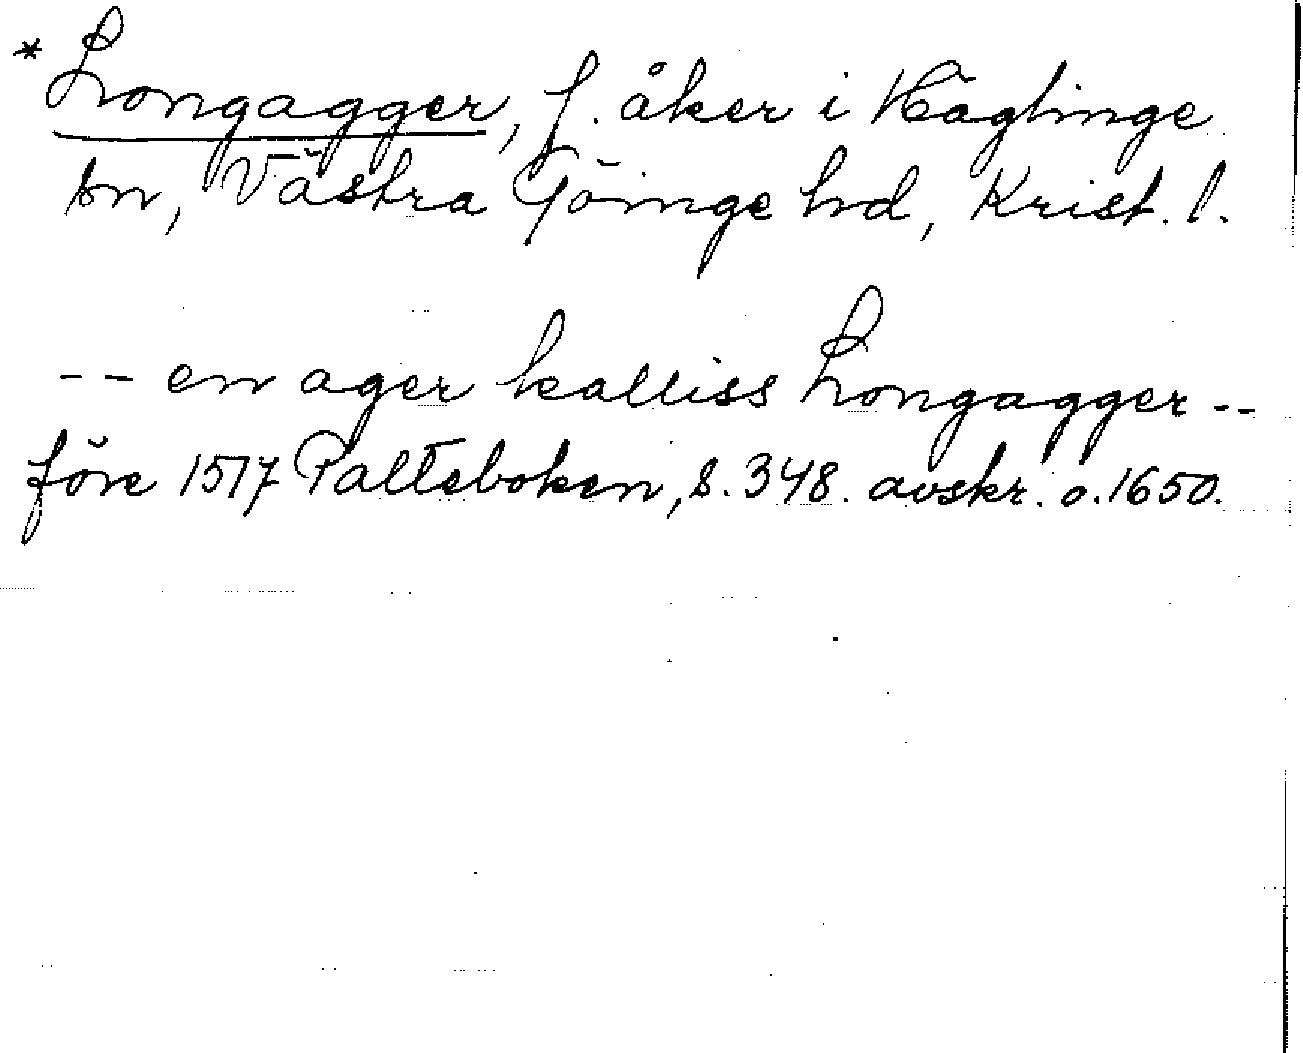 *Longagger, f. åker i Häglinge
sn, Västra Göinge hd, Krist. l.
-- en ager kalliss Longagger --
före 1517 Palteboken, s. 348. avskr. o. 1650.